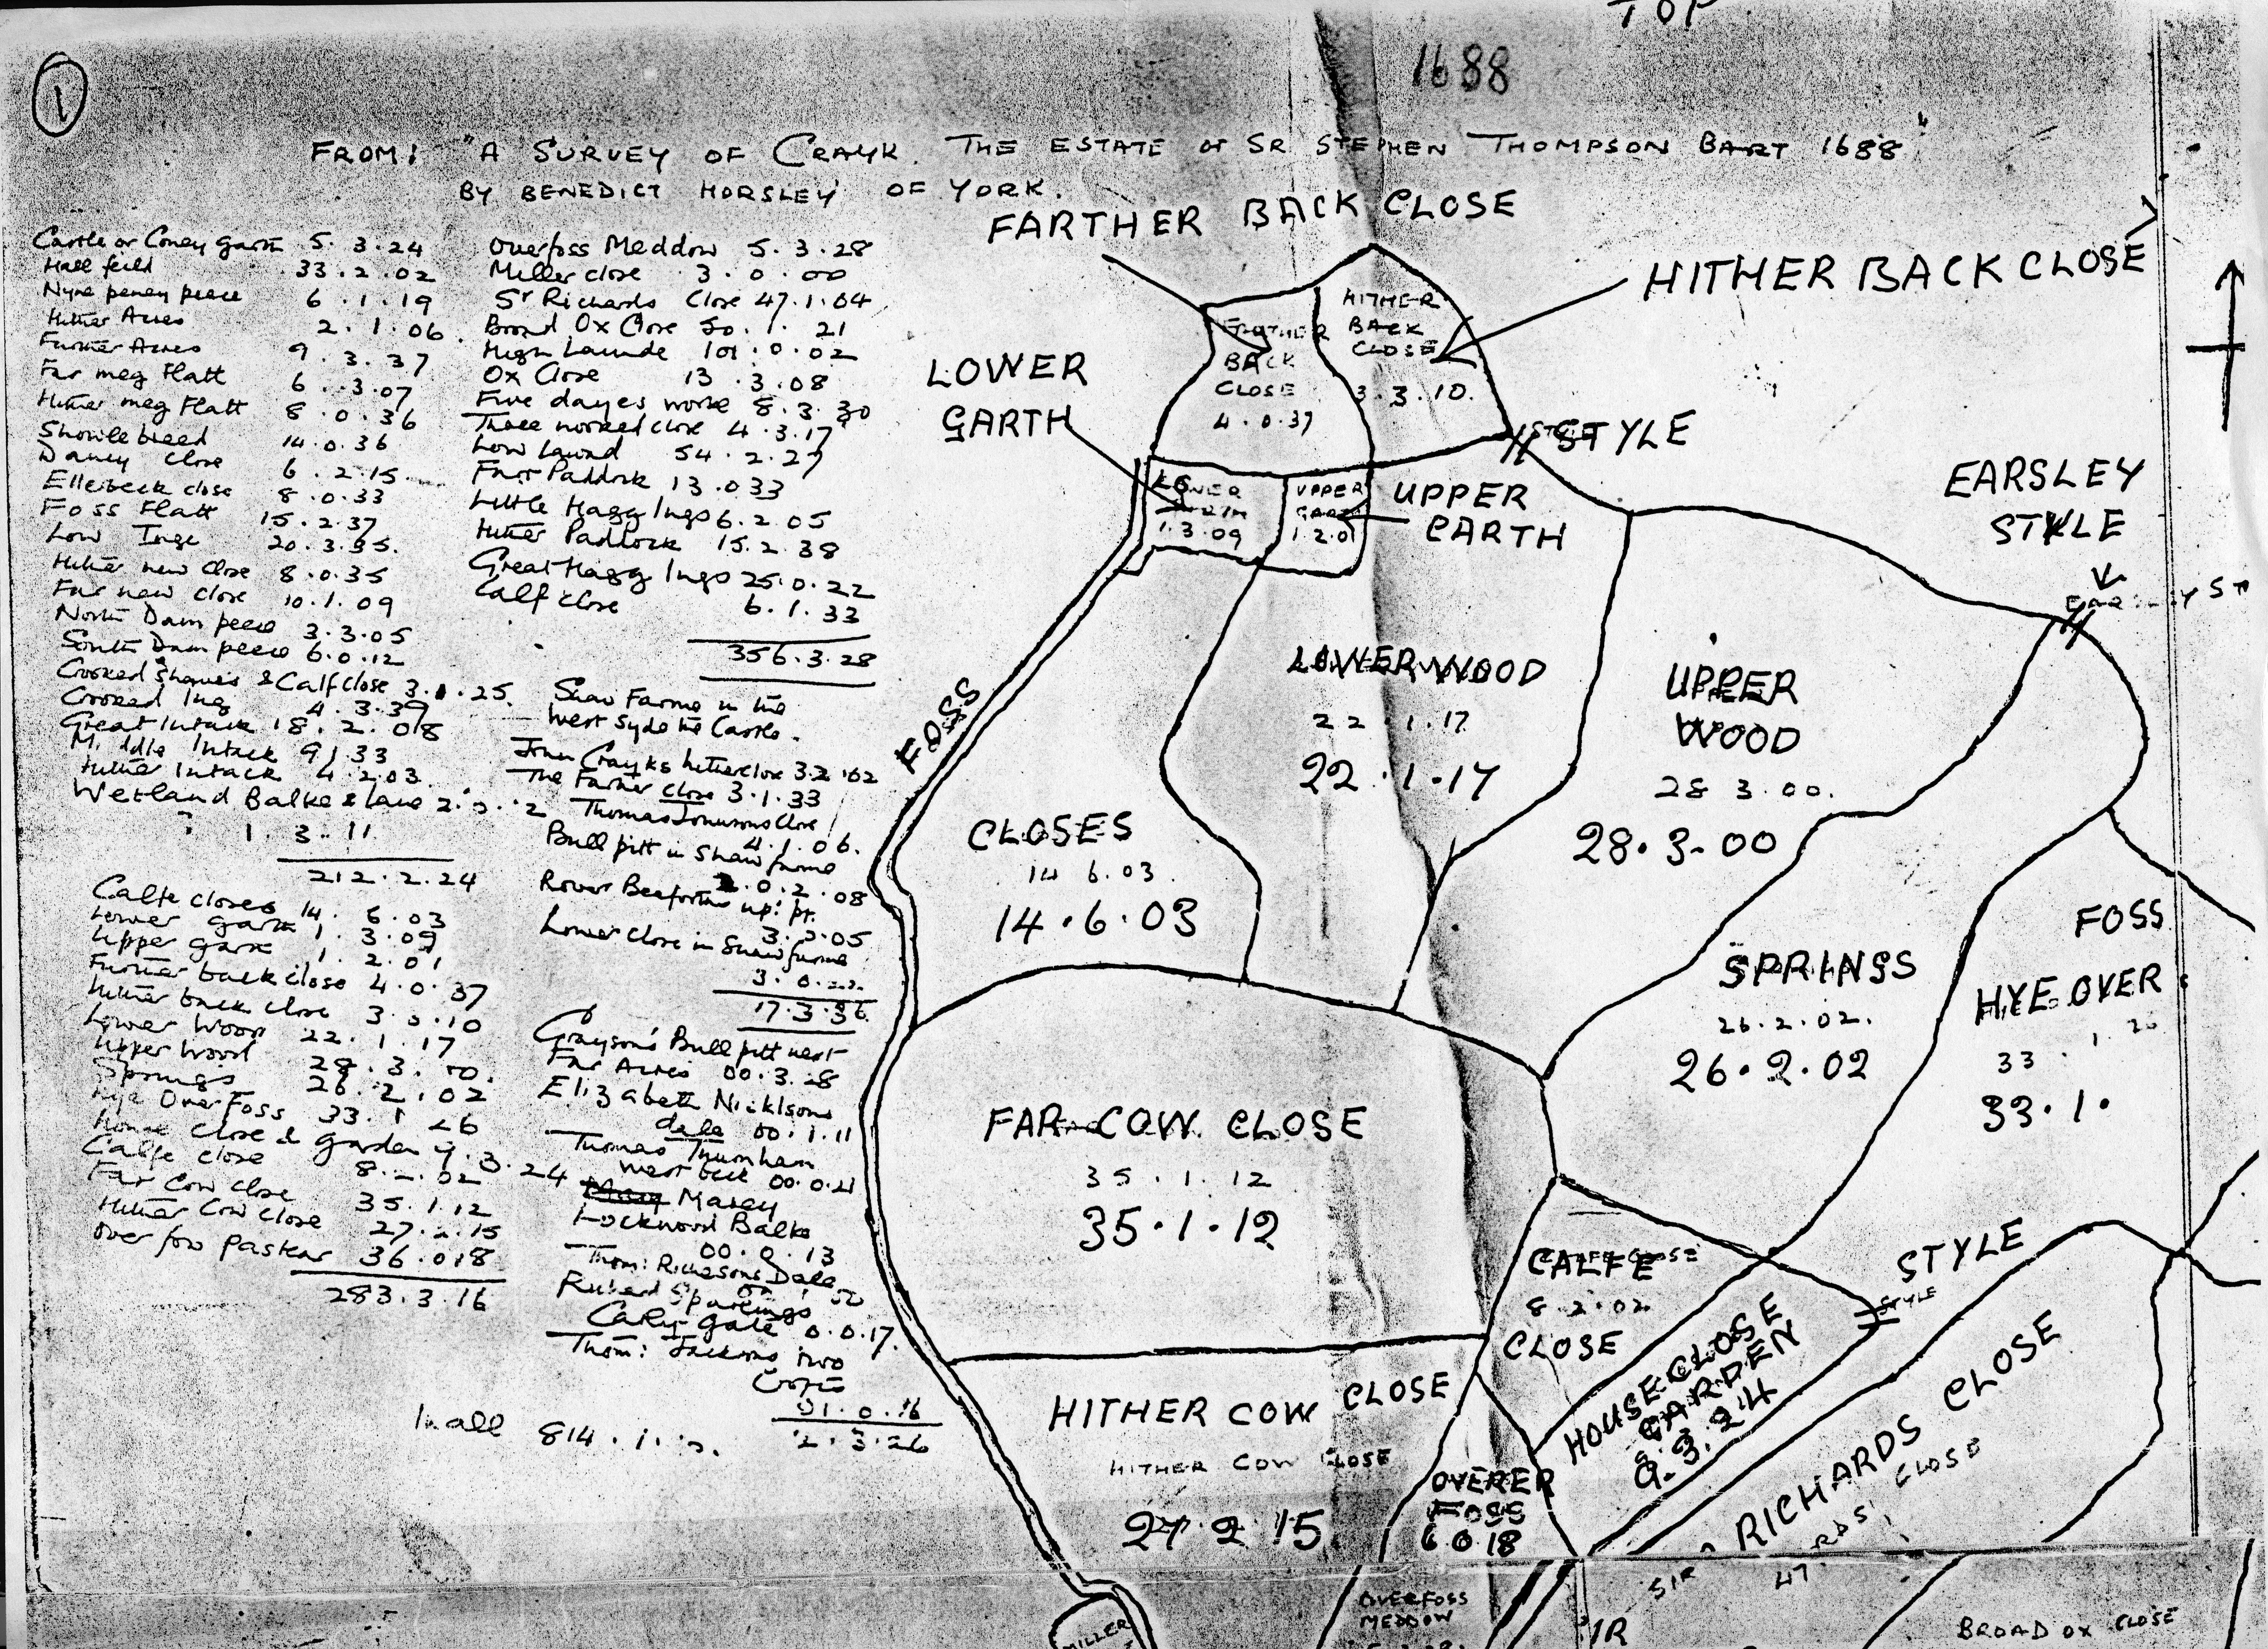 TOP
1
1688
FROM: "A SURVEY OF CRAYK. THE ESTATE OF SR. STEPHEN THOMPSON BART 1688"
BY BENEDICT HORSLEY OF YORK.
Castle or Coney garth 5.3.24
Hall feild 33.2.02
Nyne peney peece 6.1.19
Hither Acres 2.1.06
Further Acres 9.3.37
Far meg Flatt 6.3.07
Hither meg Flatt 8.0.36
Showlebreed 14.0.36
Dancy Close 6.2.15
Ellerbeck close 8.0.33
Foss Flatt 15.2.37
Low Ings 20.3.35.
Hither new Close 8.0.35
Far new close 10.1.09
North Dam peece 3.3.05
South Dam peece 6.0.12
Crooked & Calf close 3. .25.
Crooked Ing 4.3.39
Great Intack 18.2.08
Middle Intack 9 1.33
Hither Intack 4.2.03
Wetland Balke & lane 2.
1.3.11
212.2.24
Calfe closes 14.6.03
Lower garth 1.3.09
Upper garth 1.2.01
Further back close 4.0.37
Hither back close 3.3.10
Lower Wood 22.1.17
Upper Wood 28.3.00.
Springs 26.2.02
Hye Over Foss 33.1 26
House close & garden 9.3.24
Calfe close 8.2.02
Far Cow close 35.1.12
Hither Cow close 27.2.15
Over foss pastur 36.0.18
283.3.16
Overfoss Meddow 5.3.28
Miller close 3.0.00
Sr Richards Close 47.1.04
Broad Ox Close 50.1.21
High Launde 101.0.02
Ox Close 13.3.08
Five dayes worke 8.3.30
Three nooked close 4.3.17
Low Laund 54.2.27
Farr Paddock 13.033
Little Hagg Ings 6.2.05
Hither Paddock 15.2.38
Great Hagg Ings 25.0.22
Calf close 6.1.33
356.3.28
Shaw Farme in the
West Syde the Castle.
John Crayks hither close 3.2.02
The Farther close 3.1.33
Thomas Johnsons Close
4.1.06.
Bull pitt in Shaw farme
0.2.08
up: pt.
3. .05
Lower Close in Shaw farme
3.0.22.
17.3.36.
Grayson's Bull pitt next
Far Acres 00.3.28
Elizabeth Nicklsons
dale 00.1.11
Thomas Thurnham
west 00.0.21
Marey
Lockwood Balke
00.0.13
Thom: Richesons Dale
Sparlings
gate 0.0.17.
Thom: Jacksons two
Crofts
01.0.16
2.3.26
In all 814.1.
FARTHER BACK CLOSE
HITHER BACK CLOSE
HITHER
BACK
CLOSE
3.3.10.
FARTHER
BACK
CLOSE
4.0.37
LOWER
GARTH
STYLE
LOWER
GARTH
1.3.09
UPPER
GARTH
1.2.01
UPPER
EARTH
EARSLEY
STYLE
EARSLEY ST
FOSS
LOWER WOOD
22.1.17
22.1.17
UPPER
WOOD
28 3.00.
28.3.00
CLOSES
14 6.03.
14.6.03
FOSS
HYE OVER
33.1.26
33.1.
SPRINGS
26.2.02.
26.2.02
FAR COW CLOSE
35.1.12
35.1.12
CALFE CLOSE
CALFE
8.2.02
CLOSE
STYLE
STYLE
HOUSE CLOSE
GARDEN
9.3.24
HITHER COW CLOSE
HITHER COW CLOSE
27.2.15
OVERER
FOSS
6.0.18
RICHARDS CLOSE
SIR RICHARDS CLOSE
47.
OVERFOSS
MEDDOW
MILLER
BROAD OX CLOSE